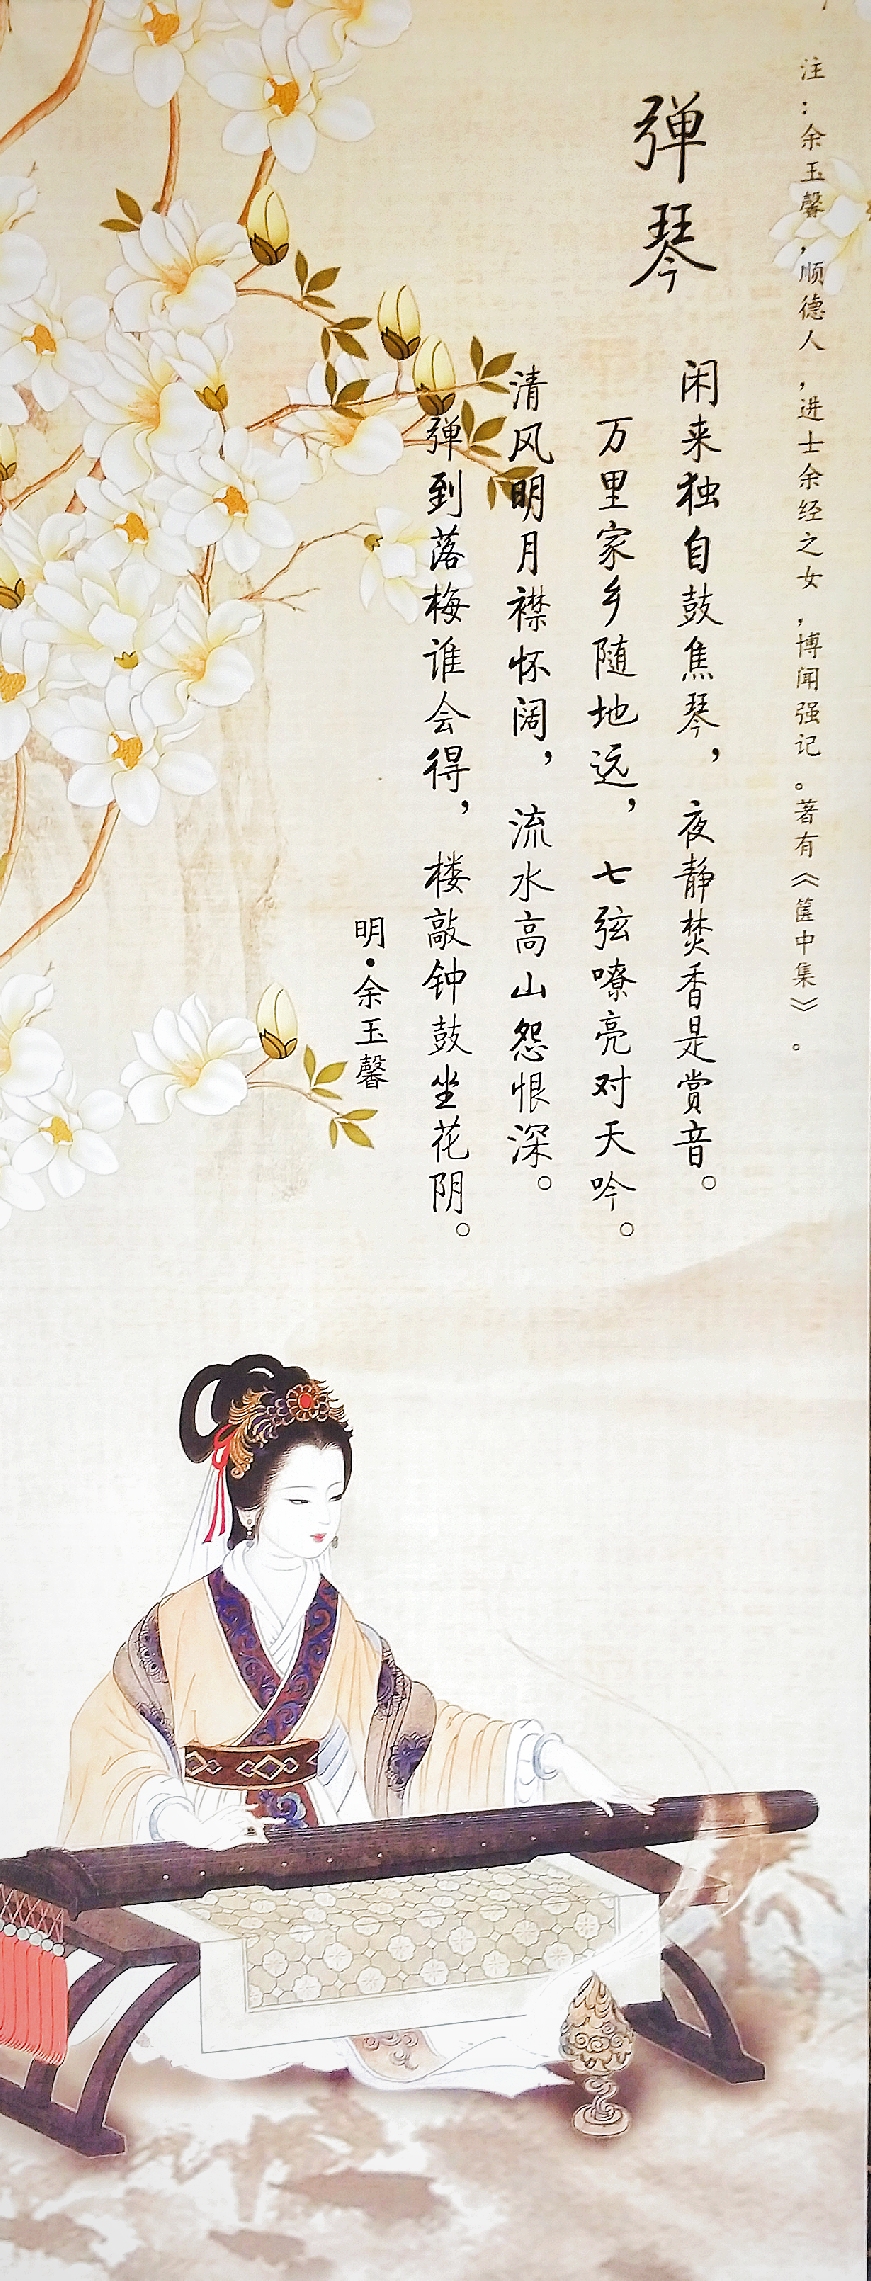 注：余玉馨，顺德人，进士余经之女，博闻强记。著有《箧中集》。
弹琴
闲来独自鼓焦琴，夜静焚香是赏音。
万里家乡随地远，七弦嘹亮对天吟。
清风明月襟怀阔，流水高山怨恨深。
弹到落梅谁会得，楼敲钟鼓坐花阴。
明·余玉馨